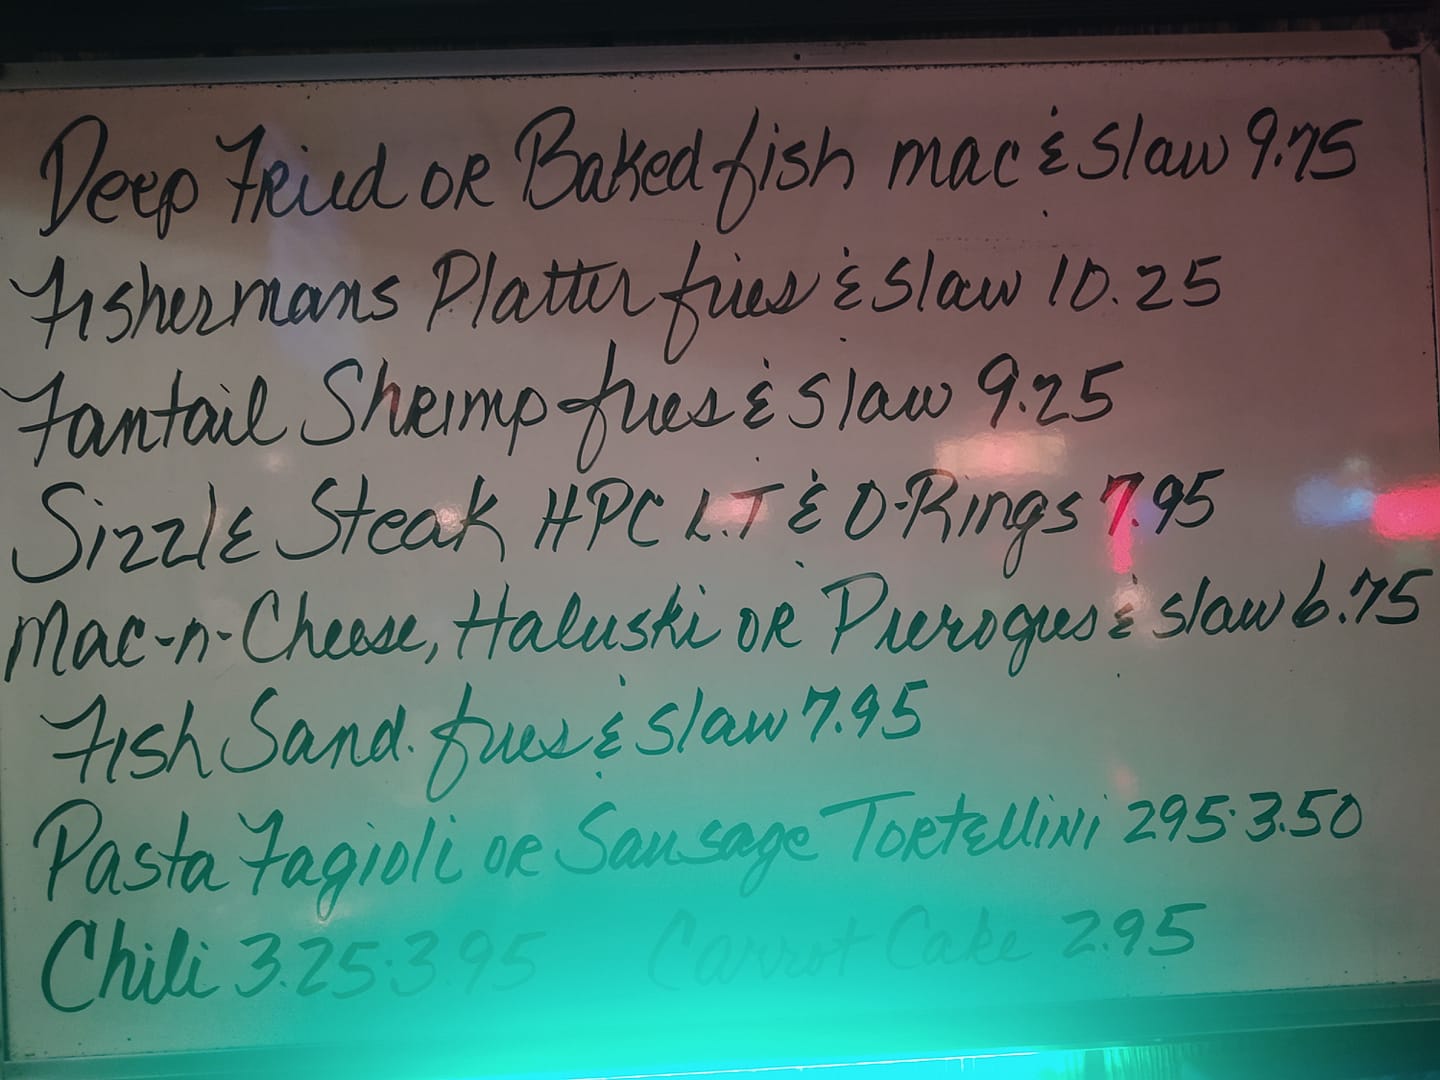 Deep Fried or Baked fish mac & Slaw 9.75
Fishermans Platter fries & Slaw 10.25
Fantail Shrimp fries & Slaw 9.25
Sizzle Steak HPC L.T & O-Rings 7.95
Mac-n-Cheese, Haluski or Pierogies & slaw 6.75
Fish Sand. fries & Slaw 7.95
Pasta Fagioli or Sausage Tortellini 295-3.50
Chili 3.25-3.95 Carrot Cake 2.95